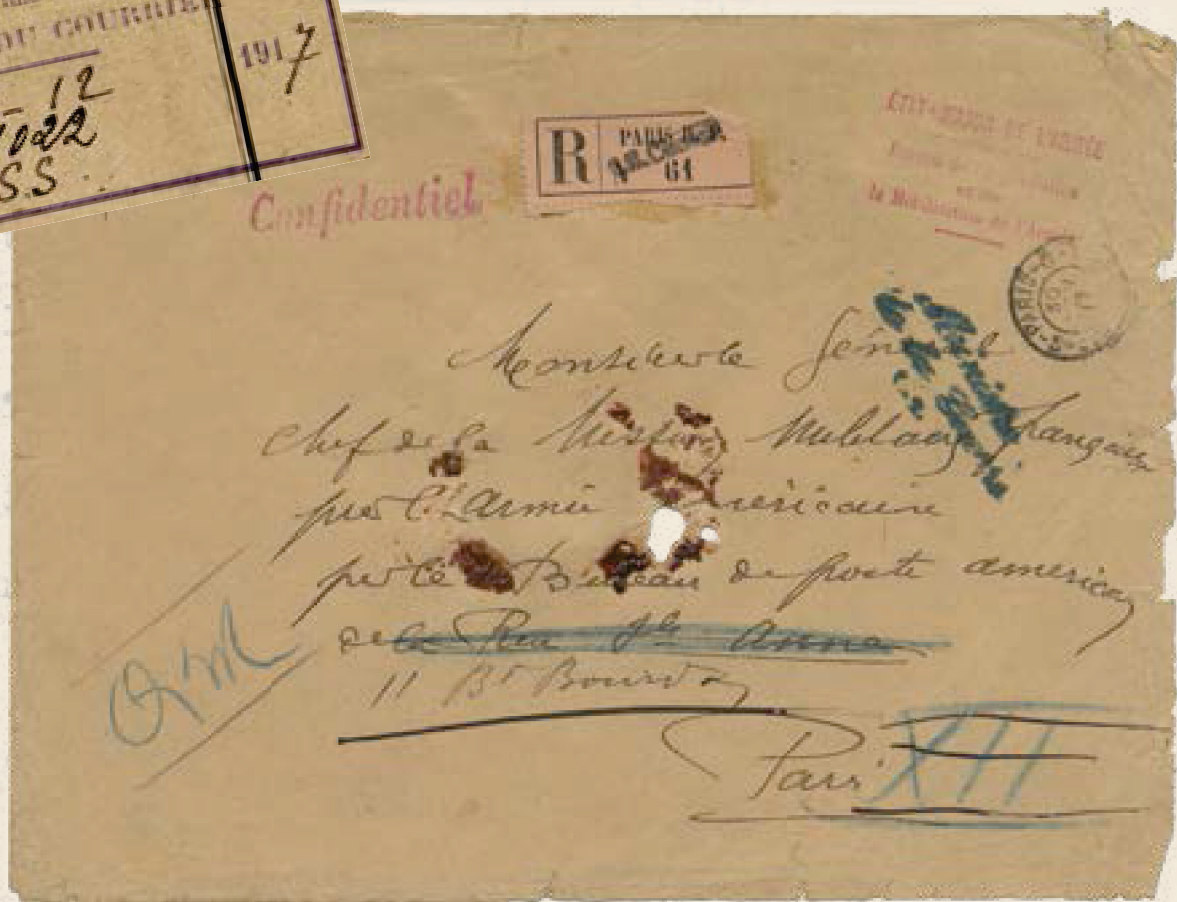 DU COURRIER
1917
12
1022
S.S.
Confidentiel
R
PARIS
61
ÉTAT-MAJOR DE L'ARMÉE
PARIS
Monsieur le Général
Chef de la Mission Militaire Française
près l'Armée Américaine
par le Bureau de poste americain
de la Rue Ste Anne
11 Bd Bourdon
Paris XII